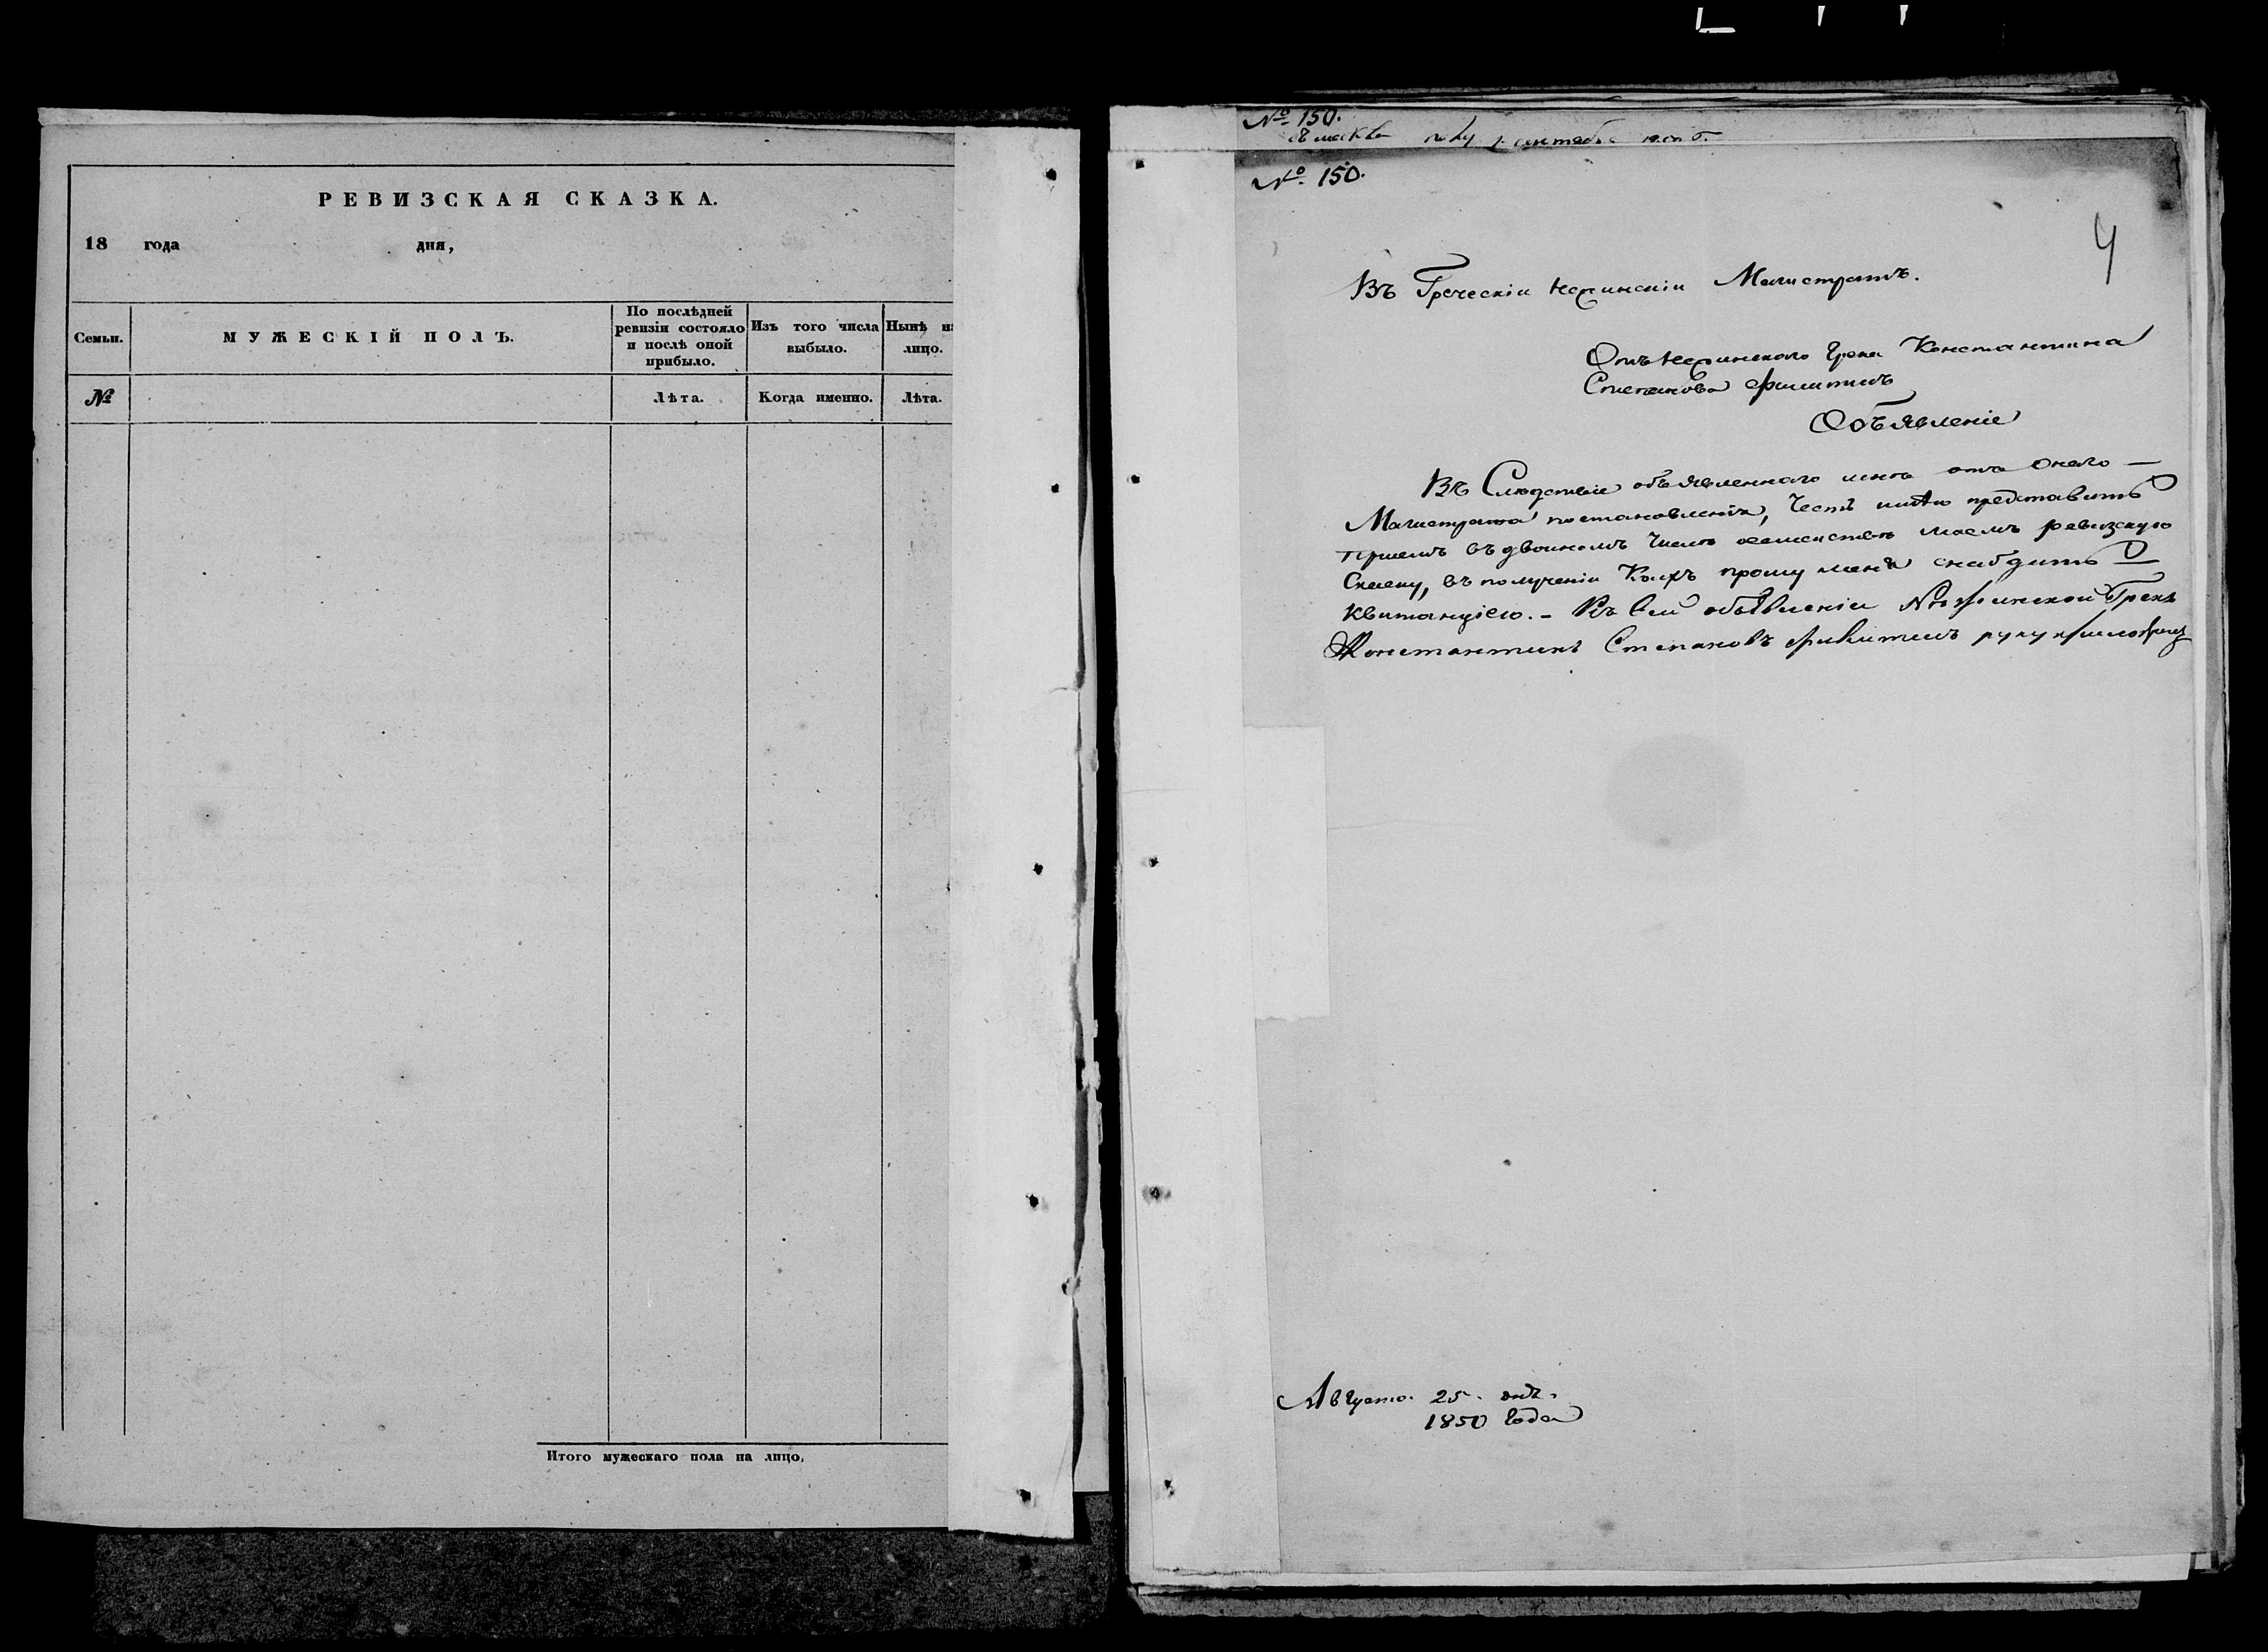 РЕВИЗСКАЯ СКАЗКА.
18 года дня,
Семьи.
МУЖЕСКІЙ ПОЛЪ.
По послѣдней
ревизіи состояло
и послѣ оной
прибыло.
Изъ того числа
выбыло.
Нынѣ на
лицо.
№
Лѣта.
Когда именно.
Лѣта.
Итого мужескаго пола на лицо,
№ 150.
№ 150.
4
Въ Греческіи Нежинскіи Магистратъ.
Отъ Нежинскаго Грека Константина
Степанова
Объявленіе
Въ Следствіе объявленнаго мнѣ отъ Онаго —
Магистрата постановленія, Честь имѣю представить
при семъ въ двоиномъ Числѣ о семеиствѣ моемъ ревизскую
Скаску, въ полученіи Коихъ прошу меня снабдить
квитанціею. – Къ сему объявленіи Нѣжинской Грекъ
Константинъ Степановъ руку приложилъ
Августа. 25. дня.
1850 Года